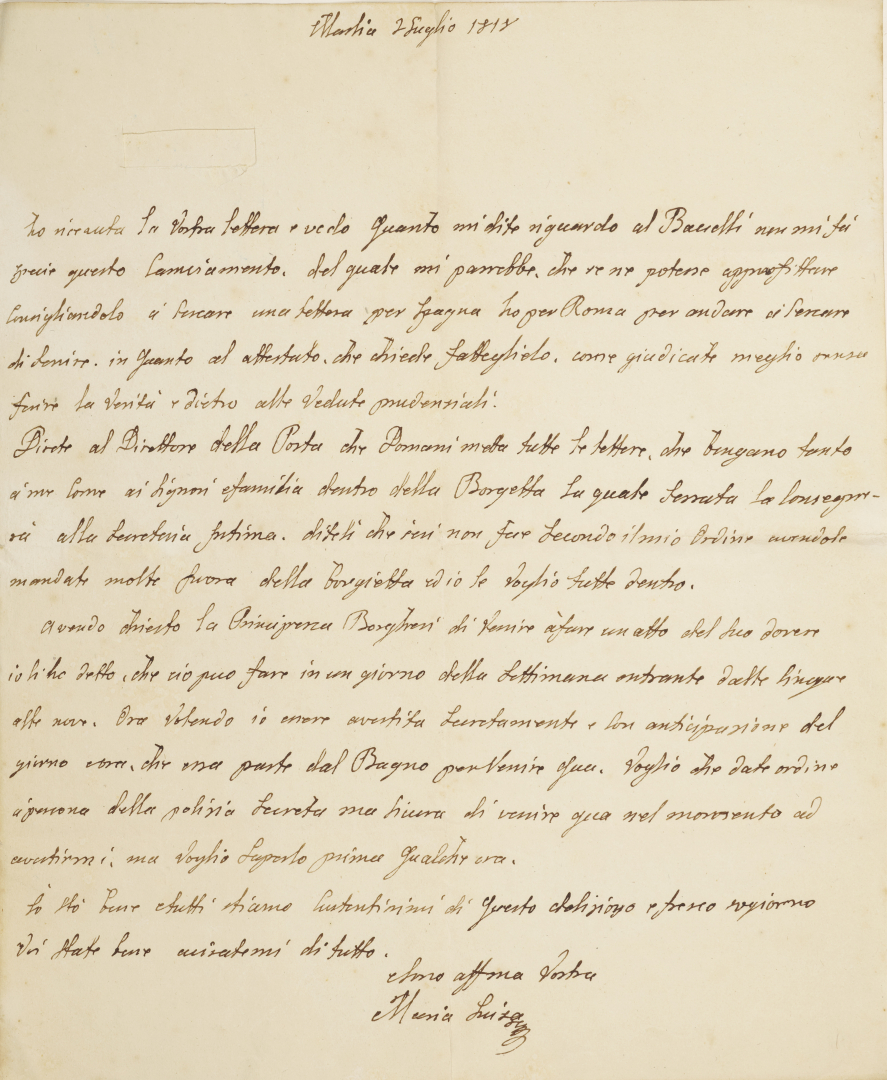 Marlia 2 Luglio 1818
ho riceuuta la Vostra lettera e vedo Quanto mi dite riguardo al Bacielli non mi fà
specie questo Lanciamento. del quale mi parrebbe, che se ne potesse approfittare
Consigliandolo à Cercare una lettera per Spagna ho per Roma per andare à Cercare
di Venire. in Quanto al attestato, che chiede fatteglielo, come giudicate meglio sensa
ferire la Verità e dietro alle Vedute prudensiali.
Direte al Direttore della Posta che Domani metta tutte le lettere, che Vengano tanto
à me Come ai Signori e familia dentro della Borgetta la quale Serrata la Consegne-
rà alla Secreteria Intima. diteli che ieri non fece Secondo il mio Ordine avendole
mandate molte fuora della borgietta ed io le Voglio tutte dentro.
Avendo chiesto la Principessa Borghesi di Venire à fare un atto del Suo dovere
io li ho detto, che ciò può fare in un giorno della Settimana entrante dalle Cinque
alle nove. Ora Volendo io essere avertita Secretamente e Con anticipasione del
giorno e ora, che essa parte dal Bagno per Venire Qua. Voglio che date ordine
à persona della polisia Secreta ma Sicura di venire qua nel momento ad
avertirmi, ma Voglio Saperlo prima Qualche ora.
Io Stò bene e tutti stiamo Contentissimi di Questo delisioso e fresco sogiorno
Voi State bene avisatemi di tutto.
e Sono affma Vostra
Maria Luisa